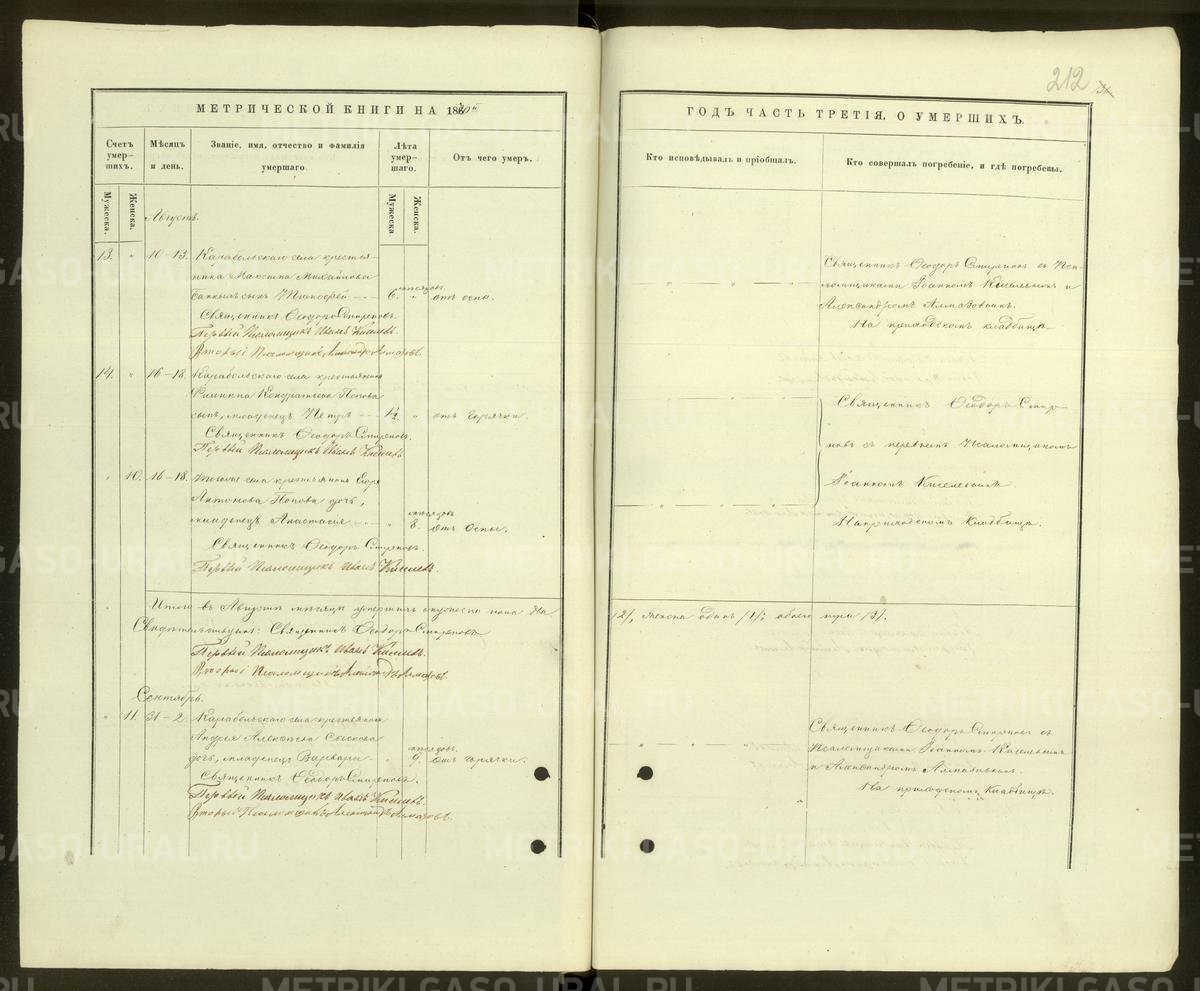 212
МЕТРИЧЕСКОЙ КНИГИ НА 18
ГОДЪ ЧАСТЬ ТРЕТІЯ, О УМЕРШИХЪ.
Счетъ умер-шихъ.
Мужеска.
Женска.
Мѣсяцъ и день.
Званіе, имя, отчество и фамилія умершаго.
Лѣта умер-шаго.
Мужеска.
Женска.
Отъ чего умеръ.
Кто исповѣдывалъ и пріобщалъ.
Кто совершалъ погребеніе, и гдѣ погребены.
Августъ.
13. " 10-13. Карабольскаго села крестья-
нина Максима Михайлова
сынъ 6 мѣсяцовъ отъ оспы.
Священникъ Ѳеодоръ Спиряновъ.
Первый Псаломщикъ Иванъ Киселевъ.
Вторый Псаломщикъ Александръ Алмазовъ.
Священникъ Ѳеодоръ Спиряновъ съ Пса-
ломщиками Іоанномъ Киселевымъ и
Александромъ Алмазовымъ.
На приходскомъ кладбищѣ
14. " 16-18. Карабольскаго села крестьянина
Филиппа Кондратьева Попова
сынъ, младенецъ Петръ 1½ " отъ горячки.
Священникъ Ѳеодоръ Спиряновъ.
Первый Псаломщикъ Иванъ Киселевъ
Священникъ Ѳеодоръ Спиря-
новъ съ первымъ Псаломщикомъ
Іоанномъ Киселевымъ.
На приходскомъ Кладбищѣ.
" 10. 16-18. села крестьянина
Антонова Попова дочь,
младенецъ Анастасія " 8 мѣсяцовъ отъ Оспы.
Священникъ Ѳеодоръ Спиряновъ.
Первый Псаломщикъ Иванъ Киселевъ.
Итого въ Августѣ мѣсяцѣ умершихъ мужеска пола два /2/, женска одинъ /1/; обоего три /3/.
Свидѣтельствуемъ: Священникъ Ѳеодоръ Спиряновъ
Первый Псаломщикъ Иванъ Киселевъ.
Вторый Псаломщикъ Александръ Алмазовъ.
Сентябрь.
" 11. 31-2. Карабольскаго села крестьянина
Андрея Алексѣева
дочь, младенецъ Варвара " 9 мѣсяцовъ. отъ горячки.
Священникъ Ѳеодоръ Спиряновъ.
Первый Псаломщикъ Иванъ Киселевъ.
Вторый Псаломщикъ Александръ Алмазовъ.
Священникъ Ѳеодоръ Спиряновъ съ
Псаломщиками Іоанномъ Киселевымъ
и Александромъ Алмазовымъ.
На приходскомъ Кладбищѣ.
METRIKI.GASO-URAL.RU